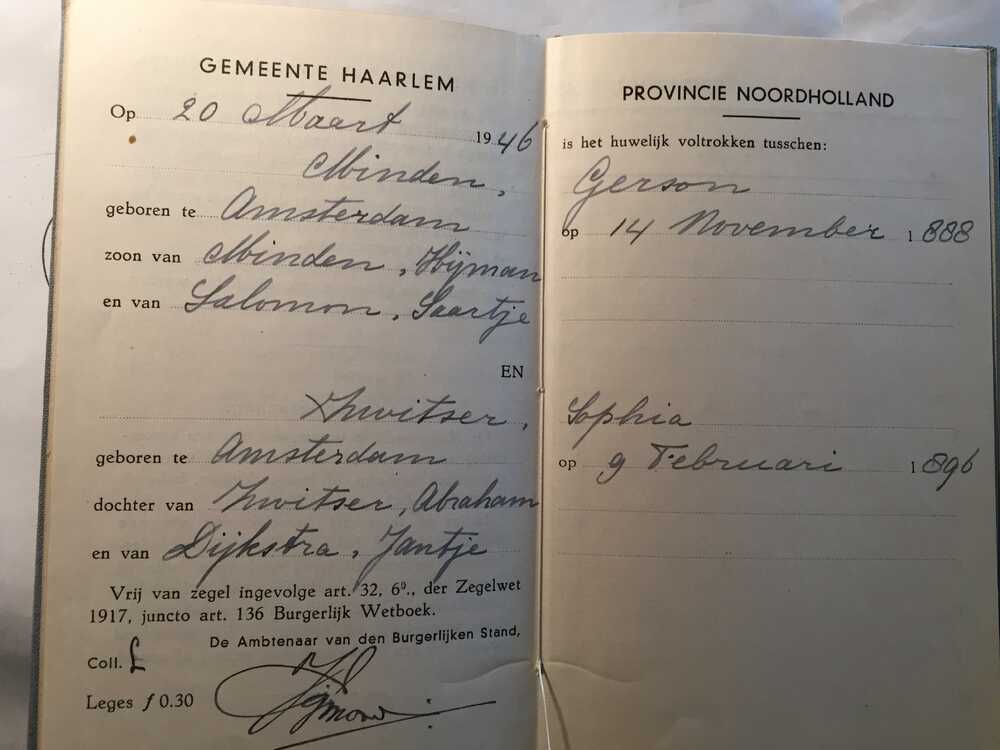 GEMEENTE HAARLEM
Op 20 Maart 1946
Minden,
geboren te Amsterdam
zoon van Minden, Hijman
en van Salomon, Saartje
EN
Zwitser,
geboren te Amsterdam
dochter van Zwitser, Abraham
en van Dijkstra, Jantje
Vrij van zegel ingevolge art. 32, 6º., der Zegelwet
1917, juncto art. 136 Burgerlijk Wetboek.
De Ambtenaar van den Burgerlijken Stand,
Coll. L
Leges ƒ 0.30
PROVINCIE NOORDHOLLAND
is het huwelijk voltrokken tusschen:
Gerson
op 14 November 1888
Sophia
op 9 Februari 1896